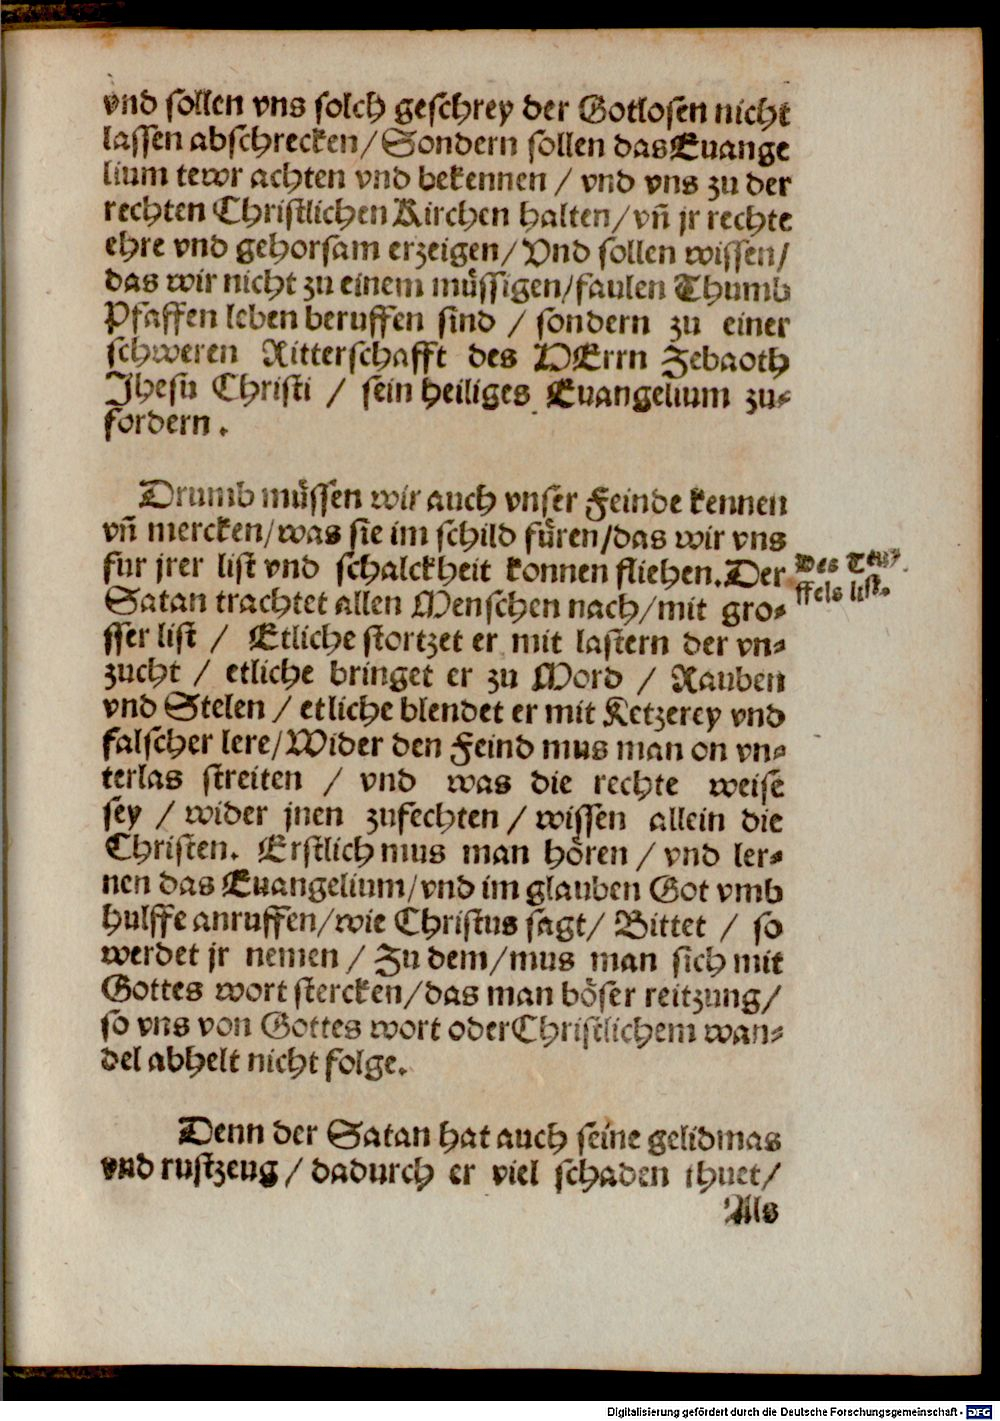 vnd sollen vns solch geschrey der Gotlosen nicht
lassen abschrecken/ Sondern sollen das Euange
lium tewr achten vnd bekennen / vnd vns zu der
rechten Christlichen Kirchen halten/ vñ jr rechte
ehre vnd gehorsam erzeigen/ Vnd sollen wissen/
das wir nicht zu einem müssigen/faulen Thumb
Pfaffen leben beruffen sind / sondern zu einer
schweren Ritterschafft des HErrn Zebaoth
Jhesu Christi / sein heiliges Euangelium zu⸗
fordern.
Drumb müssen wir auch vnser Feinde kennen
vñ mercken/was sie im schild füren/das wir vns
fur jrer list vnd schalckheit konnen fliehen.Der
Des Teuf⸗
ffels list.
Satan trachtet allen Menschen nach/mit gro⸗
sser list / Etliche stortzet er mit lastern der vn⸗
zucht / etliche bringet er zu Mord / Rauben
vnd Stelen / etliche blendet er mit Ketzerey vnd
falscher lere/Wider den Feind mus man on vn⸗
terlas streiten / vnd was die rechte weise
sey / wider jnen zufechten / wissen allein die
Christen. Erstlich mus man hören / vnd ler⸗
nen das Euangelium/vnd im glauben Got vmb
hulffe anruffen/wie Christus sagt/ Bittet / so
werdet jr nemen / Zu dem/mus man sich mit
Gottes wort stercken/das man böser reitzung/
so vns von Gottes wort oder Christlichem wan⸗
del abhelt nicht folge.
Denn der Satan hat auch seine gelidmas
vnd rustzeug / dadurch er viel schaden thuet/
Als
Digitalisierung gefördert durch die Deutsche Forschungsgemeinschaft - DFG